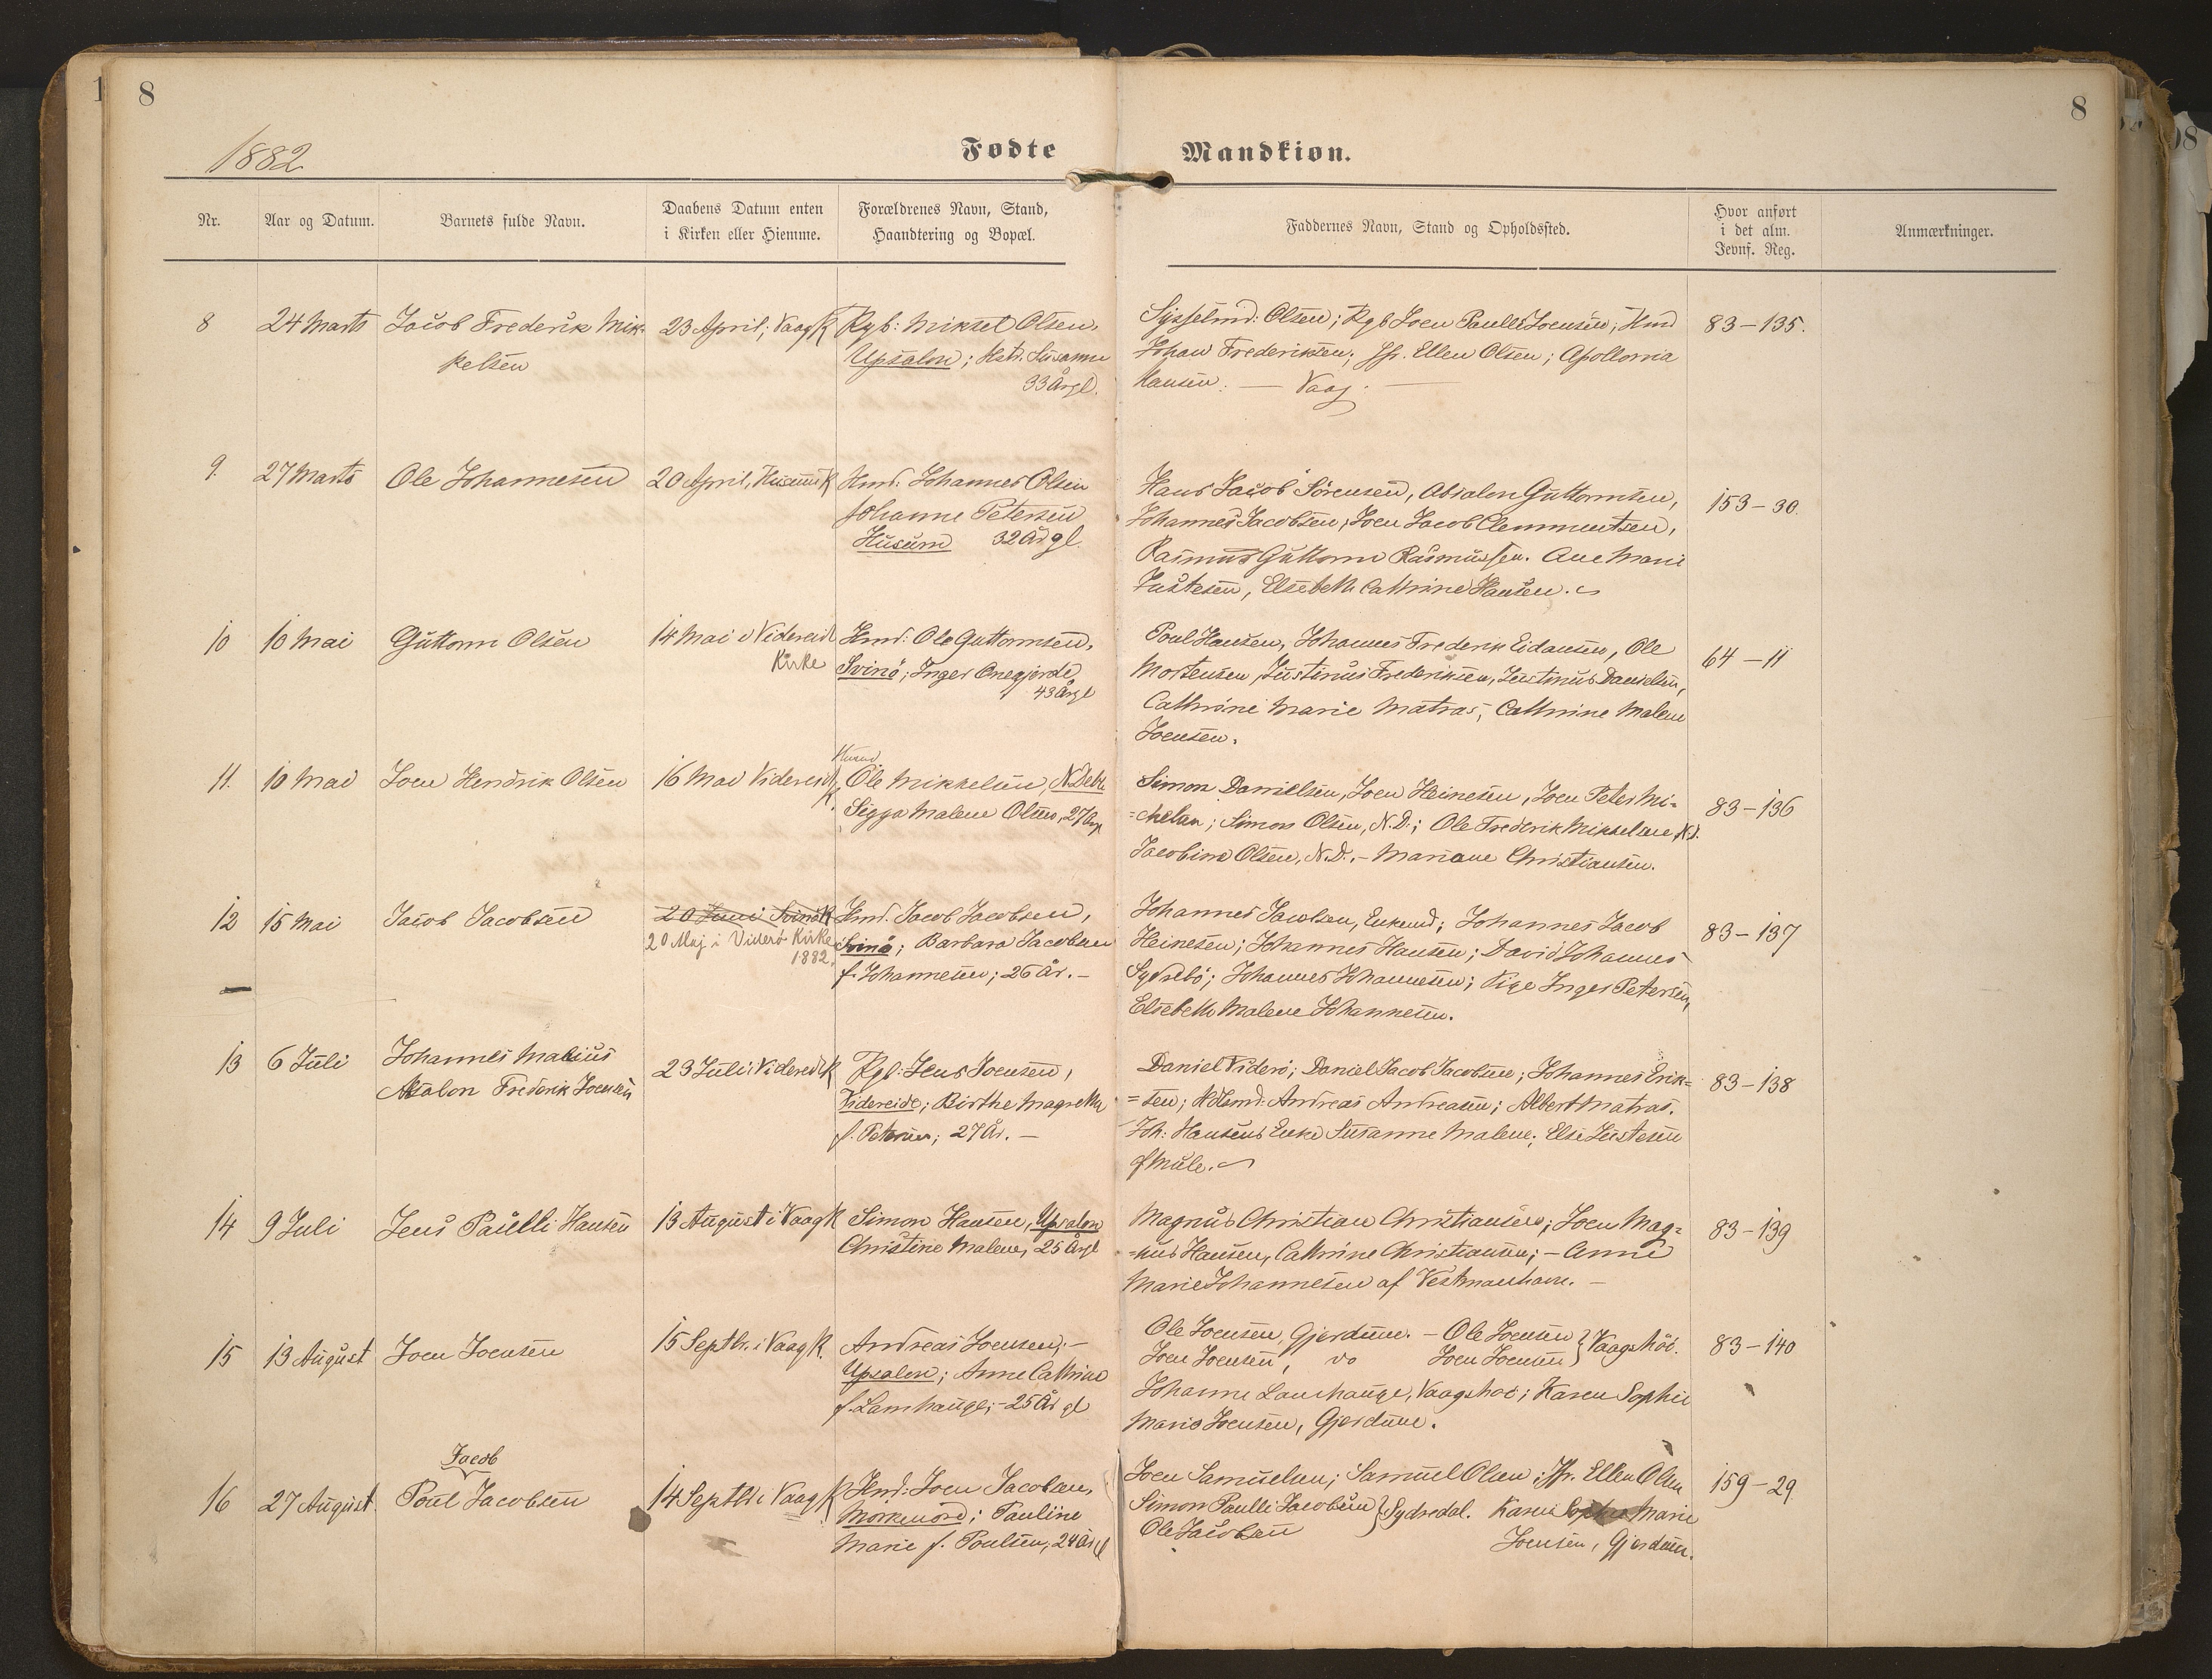 8
8
1882
Fødte
Mandkiøn.
Nr.
Aar og Datum.
Barnets fulde Navn.
Daabens Datum enten
i Kirken eller Hiemme.
Forældrenes Navn, Stand,
Haandtering og Bopæl.
Faddernes Navn, Stand og Opholdssted.
Hvor anført
i det alm.
Jevnf. Reg.
Anmærkninger.
8
24 Marts
Jacob Frederik Mik-
kelsen
23 April; Vaag K
Kgb: Mikkel Olsen,
Upsalon; Hstr. Susanne
33 Årgl.
Sysselmd: Olsen; Kgb Joen Paulli Joensen; Hmd
Johan Frederiksen; Jfr. Ellen Olsen; Apollonia
Hansen. — Vaag. —
83 - 135.
9.
27 Marts
Ole Johannesen
20 April, Husum K
Hmd. Johannes Olsen
Johanne Petersen
Husum 32 Årgl.
Hans Jacob Sörensen, Absalon Guttormsen,
Johannes Jacobsen, Joen Jacob Clemmentsen,
Rasmus Guttorm Rasmussen. Ane Marie
Justesen, Elsebeth Cathrine Hansen.
153 - 30.
10
10 Mai
Guttorm Olsen
14 Mai i Videreid
Kirke
Hmd: Ole Guttormsen,
Svinö; Inger Onegjerde
43 Årgl
Poul Hansen, Johannes Frederik Eidansen, Ole
Mortensen, Justinus Frederiksen, Justinus Danielsen,
Cathrine Marie Matras, Cathrine Malene
Joensen.
64 - 11
11.
10 Mai
Joen Hendrik Olsen
16 Mai Videreid
K.
Husmd
Ole Mikkelsen, N.Deble
Sigga Malene Olsen, 27 Årgl
Simon Danielsen, Joen Heinesen, Joen Peter Mi-
=chelsen; Simon Olsen, N.D.; Ole Frederik Mikkelsen N.D.
Jacobine Olsen, N.D. - Mariane Christiansen.
83 - 136
12
15 Mai
Jacob Jacobsen
20 Juni Svinö K
20 Maj i Viderö Kirke
1882.
Hmd. Jacob Jacobsen,
Svinö; Barbara Jacobsen
f. Johannesen; 26 År. -
Johannes Jacobsen, Enkemd; Johannes Jacob
Heinesen; Johannes Hansen; David Johannes
Sydrebö; Johannes Johannesen; Pige Inger Petersen,
Elsebeth Malene Johannesen.
83 - 137
13
6 Juli
Johannes Malius
Absalon Frederik Joensen
23 Juli i Videreid K
Kgl: Jens Joensen,
Videreide; Birthe Magretha
f. Petersen; 27 År. -
Daniel Viderö; Daniel Jacob Jacobsen; Johannes Erik-
=sen; Hdlmd. Andreas Andreasen; Albert Matras.
Joh: Hansens Enke Susanne Malene; Else Justesen
af Mule.
83 - 138
14
9 Juli
Jens Paulli Hansen
13 August i Vaag K
Simon Hansen, Upsalon
Christine Malene, 25 Årgl
Magnus Christian Christiansen; Joen Mag-
=nus Hansen, Cathrine Christiansen; - Anne
Marie Johannesen af Vestmanhavn. -
83 - 139
15
13 August
Joen Joensen
15 Septbr. i Vaag K.
Andreas Joensen, -
Upsalon; Anne Cathrine
f. Lamhauge, - 25 År gl
Ole Joensen, Gjerdum. - Ole Joensen } Vaagshöi.
Joen Joensen, do Joen Joensen
Johanne Lamhauge, Vaagshöi; Karen Sophie
Marie Joensen, Gjerdum.
83 - 140
16
27 August.
Jacob
Poul Jacobsen
14 Septbr i Vaag K
Hmd: Joen Jacobsen,
Morkenord; Pauline
Marie f. Poulsen, 24 Årgl
Joen Samuelsen; Samuel Olsen; Jfr. Ellen Olsen
Simon Paulli Jacobsen } Sydredal. Karen Sophie Marie
Ole Jacobsen Joensen, Gjerdum.
159 - 29